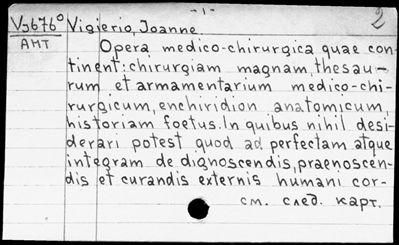 -1-
2
Vз676° Vigierio, Joanne
АНТ
Opera medico-chirurgica quae con-
tinent: chirurgiam magnam, thesau-
rum et armamentarium medico-chi-
rurgicum, enchiridion anatomicum,
historiam foetus. In quibus nihil desi-
derari potest quod ad perfectam atque
integram de dignoscendis, praenoscen-
dis et curandis externis humani cor-
см. след. карт.